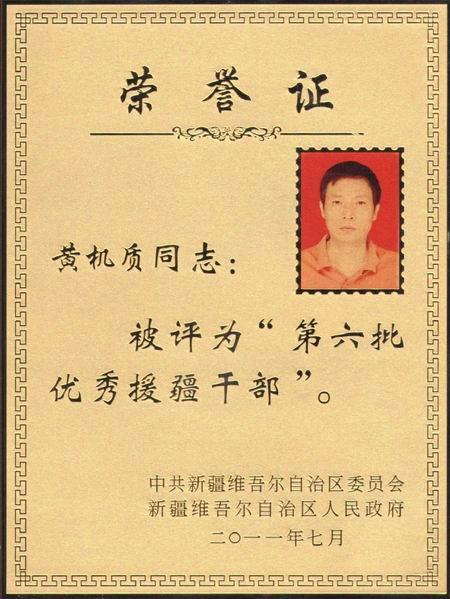 荣誉证
黄机质同志：
被评为“第六批
优秀援疆干部”。
中共新疆维吾尔自治区委员会
新疆维吾尔自治区人民政府
二〇一一年七月